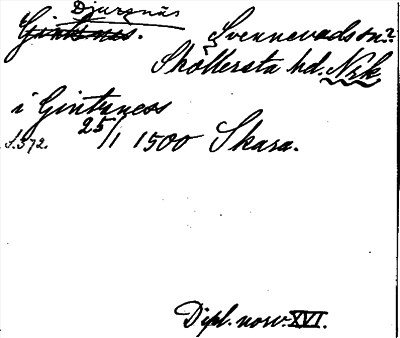 Djursnäs
Gintnes. Svennevads sn?
Sköllersta hd. Nrk.
i Gintzness
s. 372. 25/1 1500 Skara.
Dipl. norv. XVI.